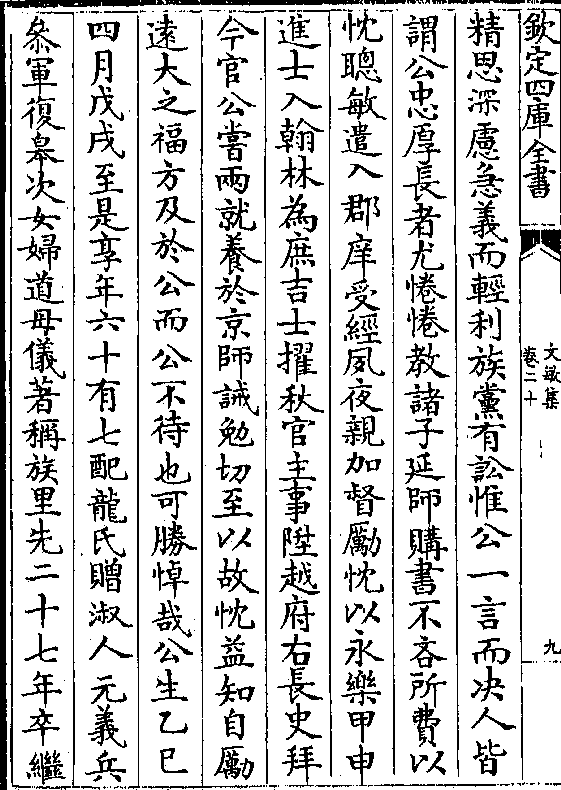 欽定四庫全書
文敏集
卷二十
九
精思深慮急義而輕利族黨有訟惟公一言而决人皆
謂公忠厚長者尤惓惓教諸子延師購書不吝所費以
忱聰敏遣入郡庠受經夙夜親加督勵忱以永樂甲申
進士入翰林為庶吉士擢秋官主事陞越府右長史拜
今官公嘗兩就養於京師誡勉切至以故忱益知自勵
逺大之福方及於公而公不待也可勝悼哉公生乙巳
四月戊戌至是享年六十有七配龍氏贈淑人元義兵
叅軍復皋次女婦道母儀著稱族里先二十七年卒繼